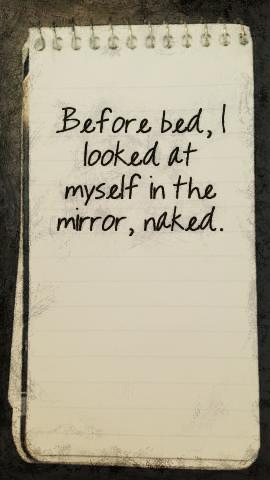 Before bed, I
looked at
myself in the
mirror, naked.